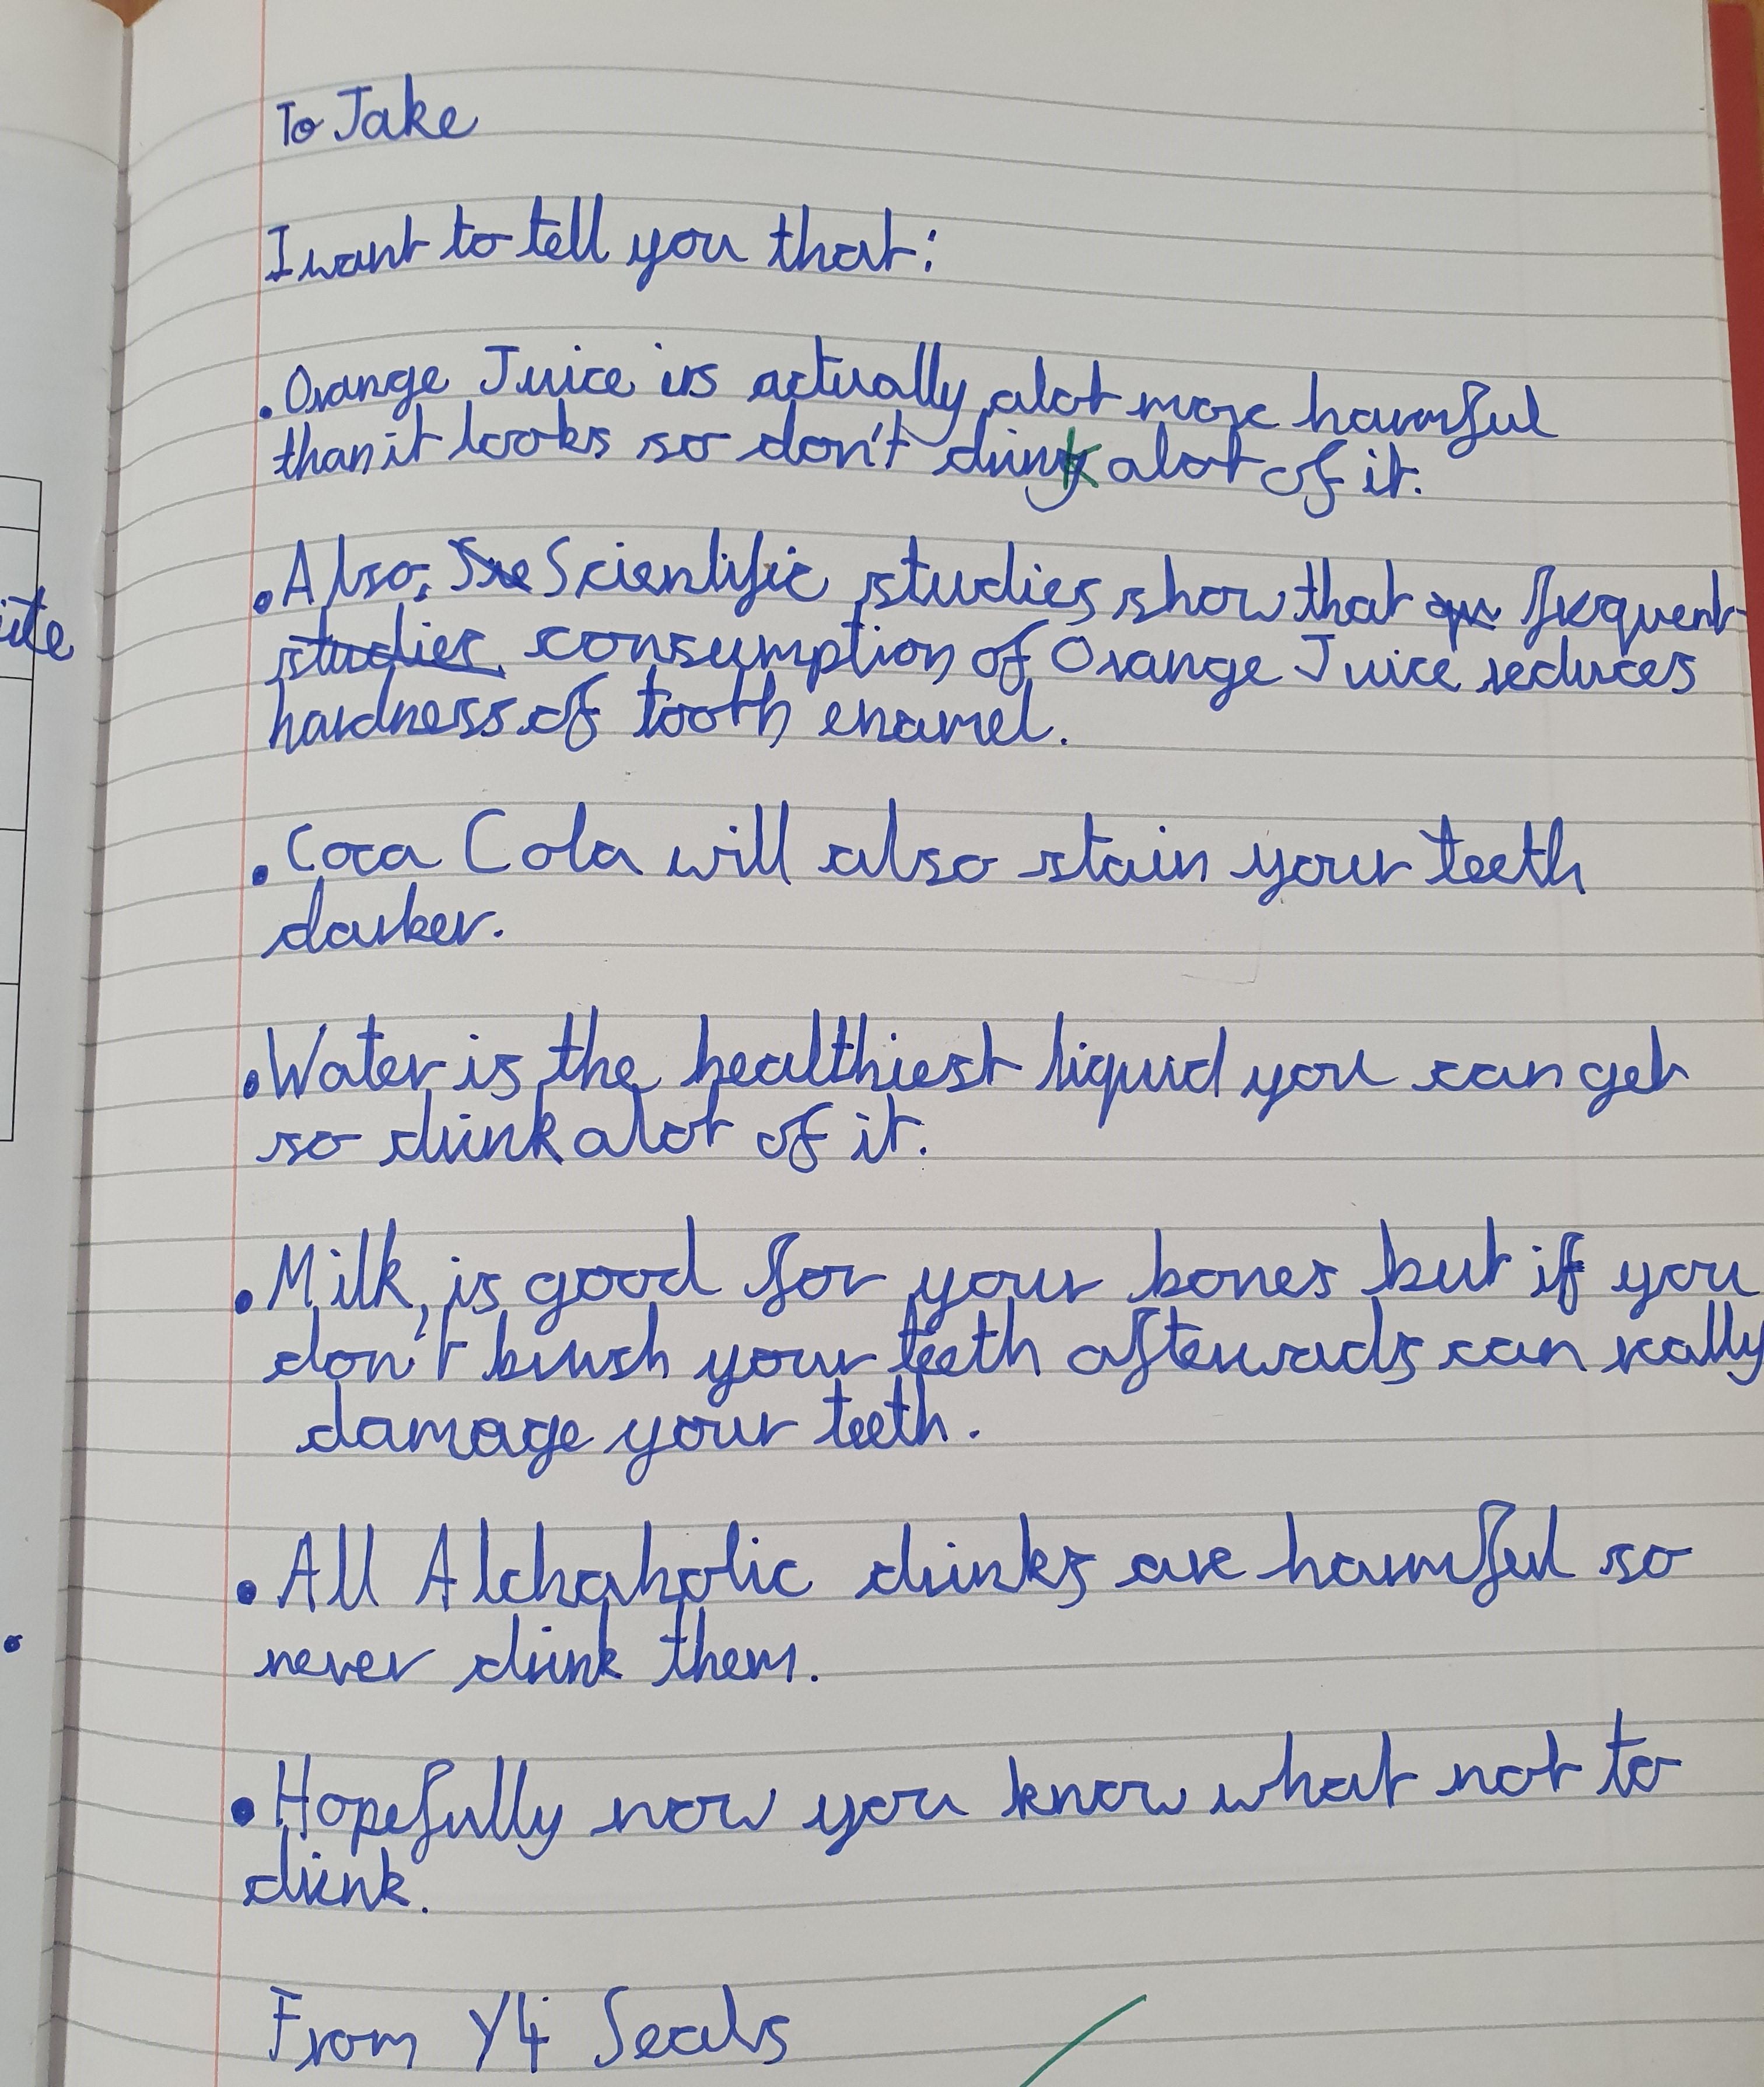 To Jake
I want to tell you that:
• Orange Juice is actually alot more harmful
than it looks so don't drink alot of it.
• Also, Scientific studies show that frequent
studies consumption of Orange Juice reduces
hardness of tooth enamel.
• Coca Cola will also stain your teeth
darker.
ite
• Water is the healthiest liquid you can get
so drink alot of it.
• Milk, is good for your bones but if you
don't brush your teeth afterwads can really
damage your teeth.
• All Alchaholic drinks are harmful so
never drink them.
• Hopefully now you know what not to
drink.
From Y4 Seals